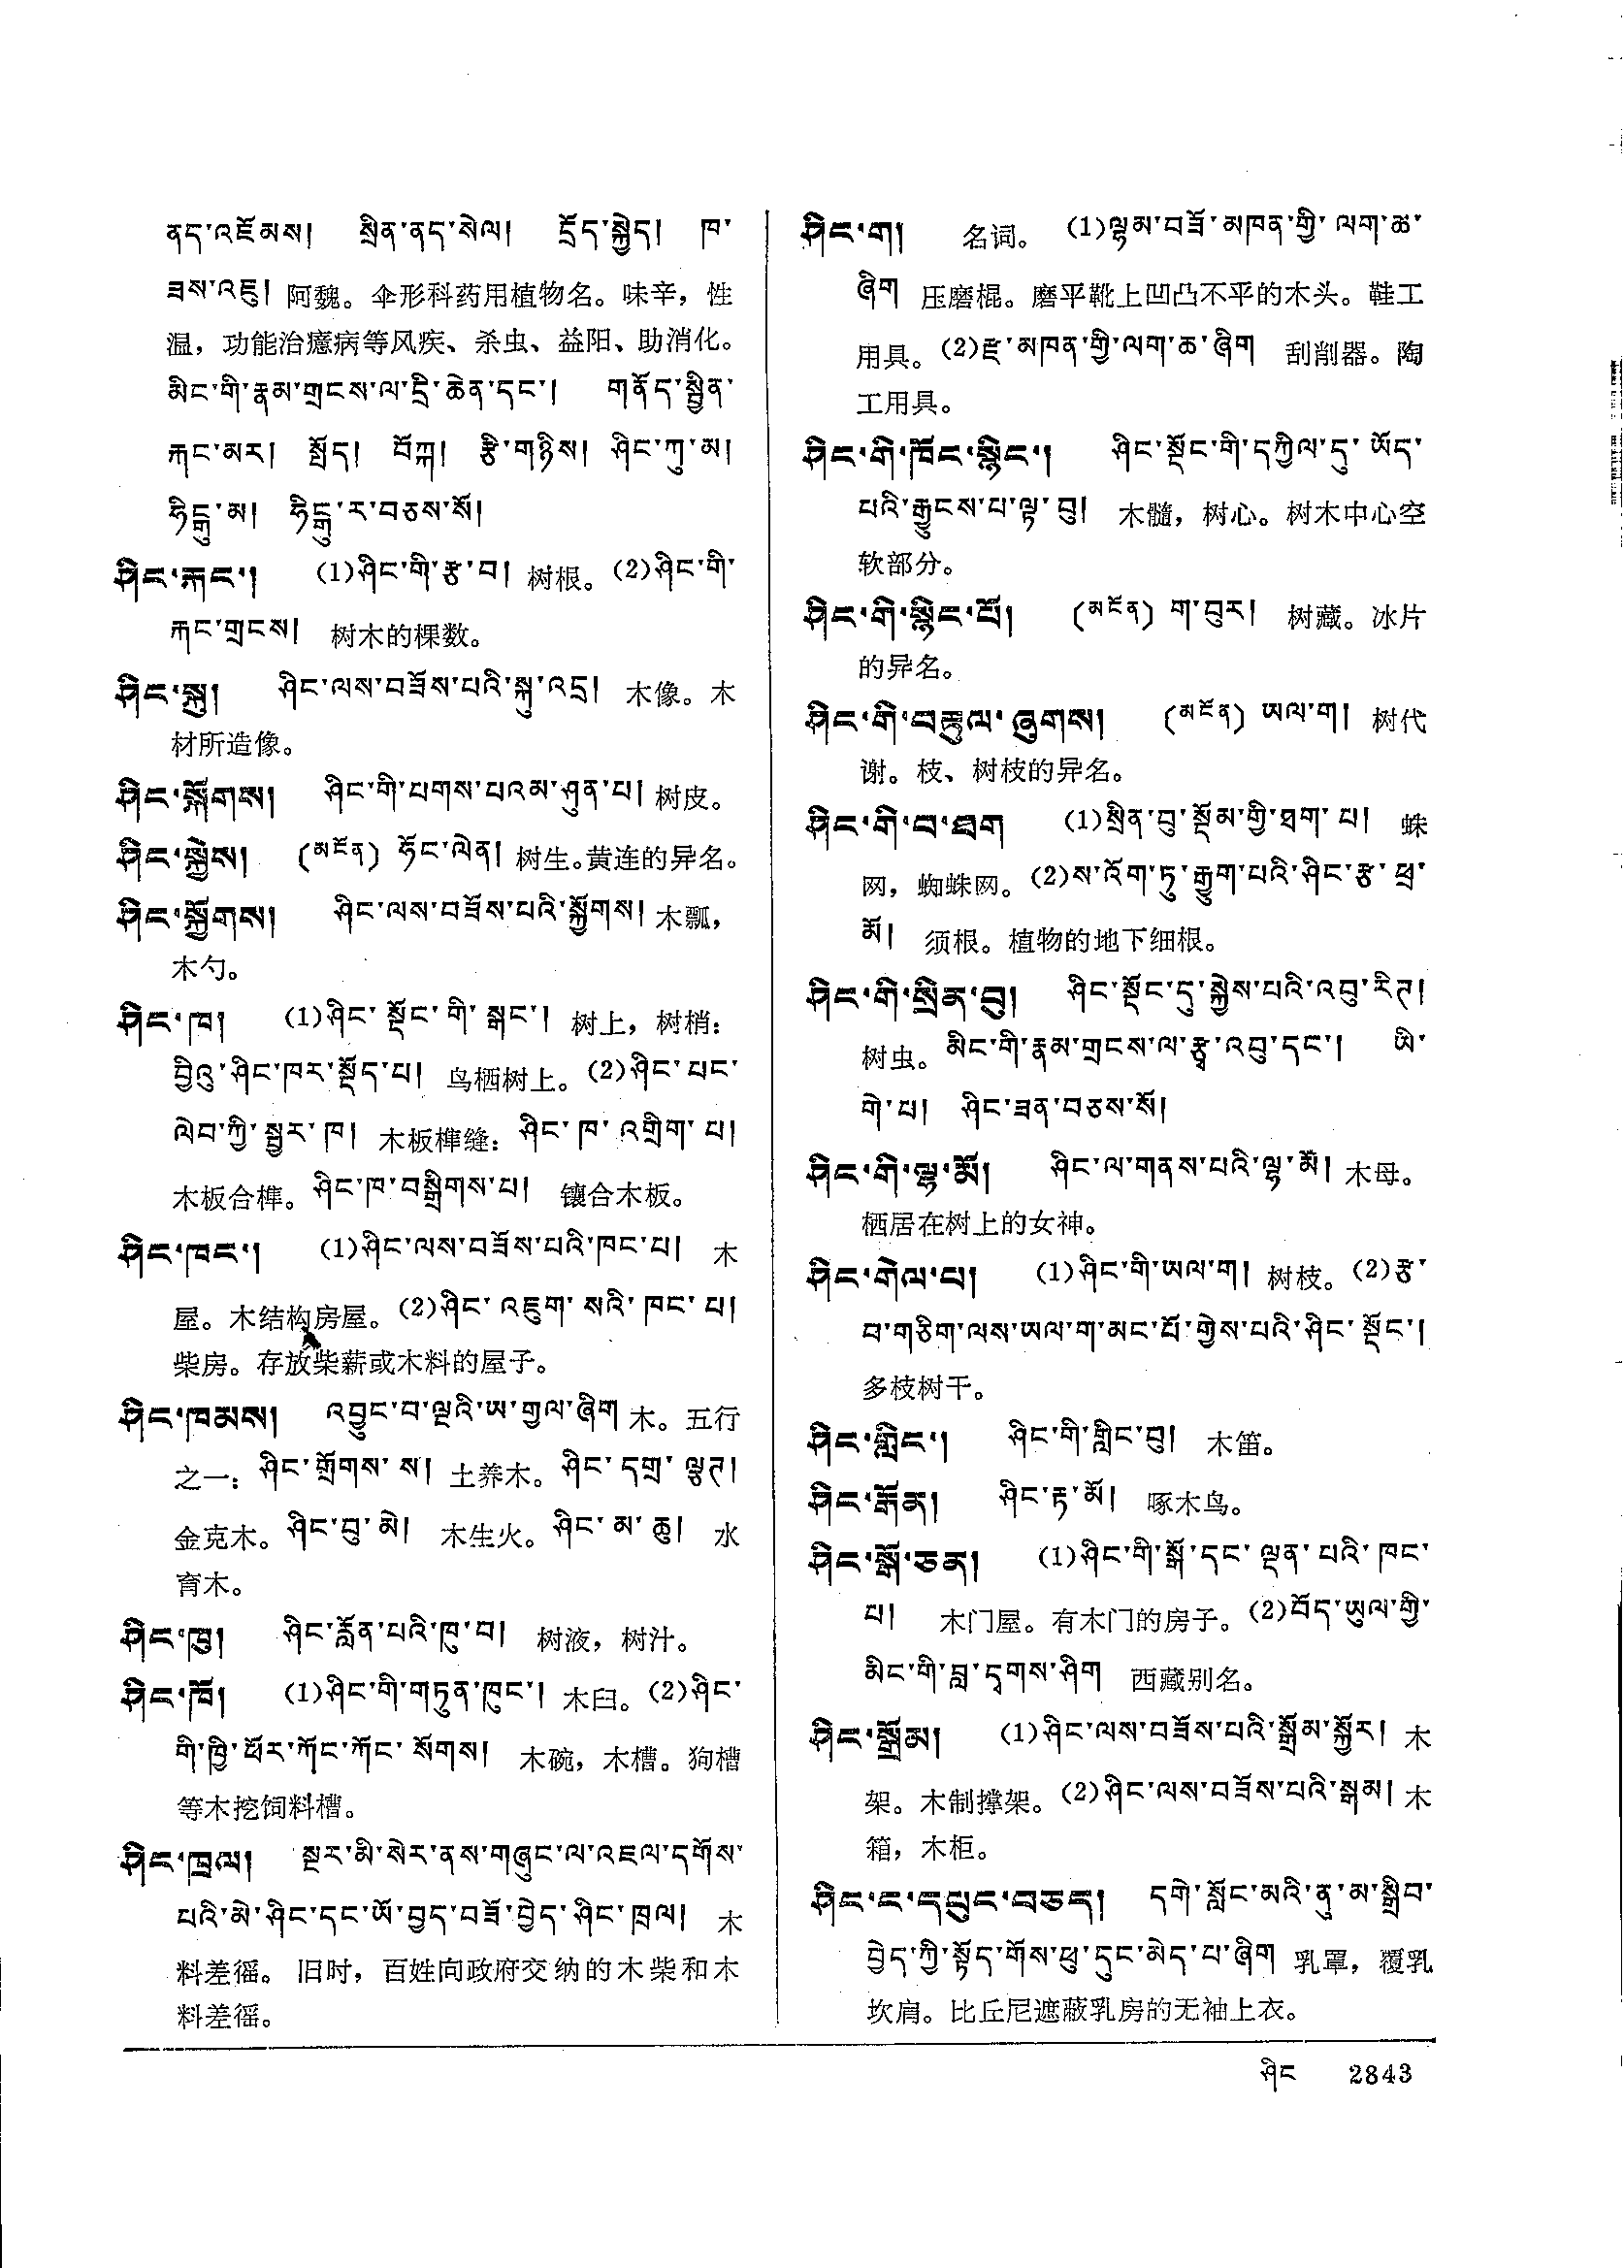 ནད་འཇོམས། སྲིན་ནད་སེལ། དྲོད་སྐྱེད། ཁ་
ཟས་འཇུ། 阿魏。伞形科药用植物名。味辛，性
温，功能治癔病等风疾、杀虫、益阳、助消化。
མིང་གི་རྣམ་གྲངས་ལ་དྲི་ཆེན་དང་། གནོད་སྦྱིན་
རྐང་མར། སྤོད། བོཀྐ། རྩི་གཉིས། ཤིང་ཀུ་མ།
ཧིངྒུ་མ། ཧིངྒུ་ར་བཅས་སོ།
ཤིང་རྐང་། (1)ཤིང་གི་རྩ་བ། 树根。(2)ཤིང་གི་
རྐང་གྲངས། 树木的棵数。
ཤིང་སྐུ། ཤིང་ལས་བཟོས་པའི་སྐུ་འདྲ། 木像。木
材所造像。
ཤིང་སྐོགས། ཤིང་གི་པགས་པའམ་ཤུན་པ། 树皮。
ཤིང་སྐྱེས། (མངོན) ཧོང་ལེན། 树生。黄连的异名。
ཤིང་སྐྱོགས། ཤིང་ལས་བཟོས་པའི་སྐྱོགས། 木瓢，
木勺。
ཤིང་ཁ། (1)ཤིང་སྡོང་གི་སྒང་། 树上，树梢：
བྱིའུ་ཤིང་ཁར་སྡོད་པ། 鸟栖树上。(2)ཤིང་པང་
ལེབ་ཀྱི་སྦྱར་ཁ། 木板榫缝：ཤིང་ཁ་འགྲིག་པ།
木板合榫。ཤིང་ཁ་བསྒྲིགས་པ། 镶合木板。
ཤིང་ཁང་། (1)ཤིང་ལས་བཟོས་པའི་ཁང་པ། 木
屋。木结构房屋。(2)ཤིང་འཇུག་སའི་ཁང་པ།
柴房。存放柴薪或木料的屋子。
ཤིང་ཁམས། འབྱུང་བ་ལྔའི་ཨ་གྱལ་ཞིག 木。五行
之一：ཤིང་གྲོགས་ས། 土养木。ཤིང་དགྲ་ལྕཊ།
金克木。ཤིང་བུ་མེ། 木生火。ཤིང་མ་ཆུ། 水
育木。
ཤིང་ཁུ། ཤིང་རློན་པའི་ཁུ་བ། 树液，树汁。
ཤིང་ཁོ། (1)ཤིང་གི་གཏུན་ཁུང་། 木臼。(2)ཤིང་
གི་ཁྱི་ཕོར་ཀོང་ཀོང་སོགས། 木碗，木槽。狗槽
等木挖饲料槽。
ཤིང་ཁྲལ། སྔར་མི་སེར་ནས་གཞུང་ལ་འཇལ་དགོས་
པའི་མེ་ཤིང་དང་ཡོ་བྱད་བཟོ་བྱེད་ཤིང་ཁྲལ། 木
料差徭。旧时，百姓向政府交纳的木柴和木
料差徭。
ཤིང་ག། 名词。(1)ལྷམ་བཟོ་མཁན་གྱི་ལག་ཆ་
ཞིག 压磨棍。磨平靴上凹凸不平的木头。鞋工
用具。(2)རྫ་མཁན་གྱི་ལག་ཆ་ཞིག 刮削器。陶
工用具。
ཤིང་གི་ཁོང་སྙིང་། ཤིང་སྡོང་གི་དཀྱིལ་དུ་ཡོད་
པའི་རྒྱུངས་པ་ལྟ་བུ། 木髓，树心。树木中心空
软部分。
ཤིང་གི་སྙིང་པོ། (མངོན) ག་བུར། 树藏。冰片
的异名。
ཤིང་གི་བརྟུལ་ཞུགས། (མངོན) ཡལ་ག། 树代
谢。枝、树枝的异名。
ཤིང་གི་བ་ཐག (1)སྲིན་བུ་སྡོམ་གྱི་ཐག་པ། 蛛
网，蜘蛛网。(2)ས་འོག་ཏུ་རྒྱུག་པའི་ཤིང་རྩ་ཕྲ་
མོ། 须根。植物的地下细根。
ཤིང་གི་སྲིན་བུ། ཤིང་སྡོང་དུ་སྐྱེས་པའི་འབུ་རིཊ།
树虫。མིང་གི་རྣམ་གྲངས་ལ་རྩྭ་འབུ་དང་། ཨི་
གེ་པ། ཤིང་ཟན་བཅས་སོ།
ཤིང་གི་ལྷ་མོ། ཤིང་ལ་གནས་པའི་ལྷ་མོ། 木母。
栖居在树上的女神。
ཤིང་གེལ་པ། (1)ཤིང་གི་ཡལ་ག། 树枝。(2)རྩ་
བ་གཅིག་ལས་ཡལ་ག་མང་པོ་གྱེས་པའི་ཤིང་སྡོང་།
多枝树干。
ཤིང་གླིང་། ཤིང་གི་གླིང་བུ། 木笛。
ཤིང་རྒོན། ཤིང་རྟ་མོ། 啄木鸟。
ཤིང་སྒོ་ཅན། (1)ཤིང་གི་སྒོ་དང་ལྡན་པའི་ཁང་
པ། 木门屋。有木门的房子。(2)བོད་ཡུལ་གྱི་
མིང་གི་བླ་དྭགས་ཤིག 西藏别名。
ཤིང་སྒྲོམ། (1)ཤིང་ལས་བཟོས་པའི་སྒྲོམ་སྐྱོར། 木
架。木制撑架。(2)ཤིང་ལས་བཟོས་པའི་སྒམ། 木
箱，木柜。
ཤིང་ང་དཔུང་བཅད། དགེ་སློང་མའི་ནུ་མ་སྒྲིབ་
བྱེད་ཀྱི་སྟོད་གོས་ཕུ་དུང་མེད་པ་ཞིག 乳罩，覆乳
坎肩。比丘尼遮蔽乳房的无袖上衣。
ཤིང 2843